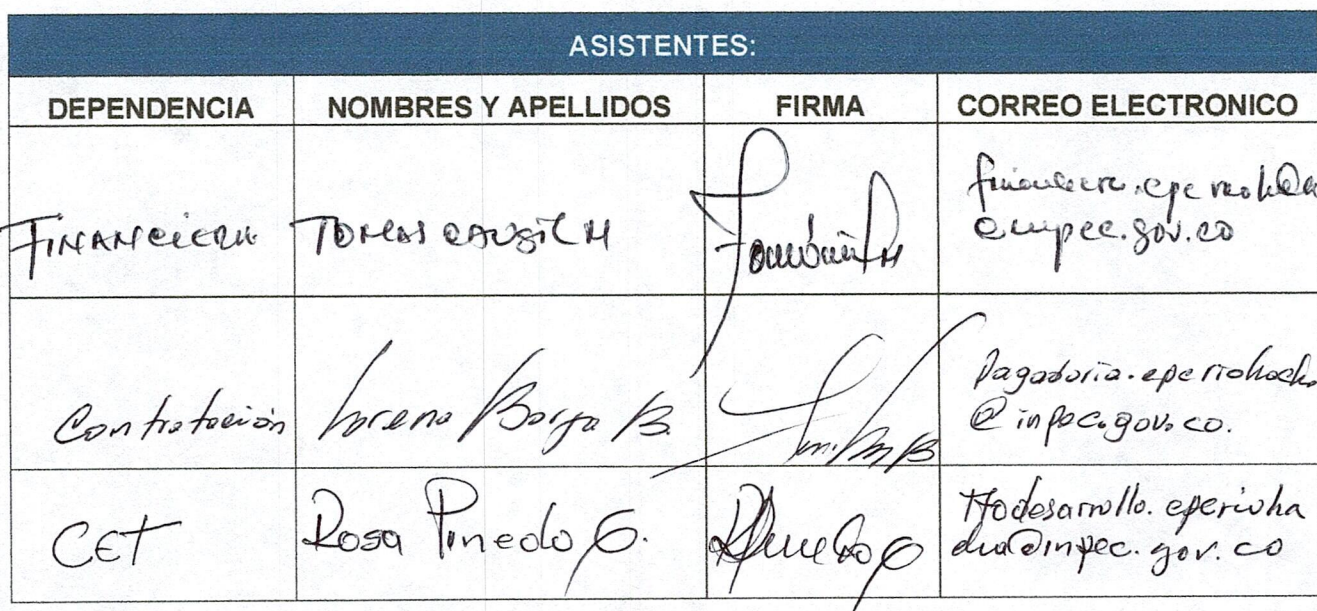 ASISTENTES:
DEPENDENCIA NOMBRES Y APELLIDOS FIRMA CORREO ELECTRONICO
FINANCIERA TOMAS
@inpec.gov.co
Contratación Lorena Borja B. Pagaduria.eperiohacha
@inpec.gov.co.
CET Rosa Pinedo G. ttodesarrollo.eperioha
cha@inpec.gov.co